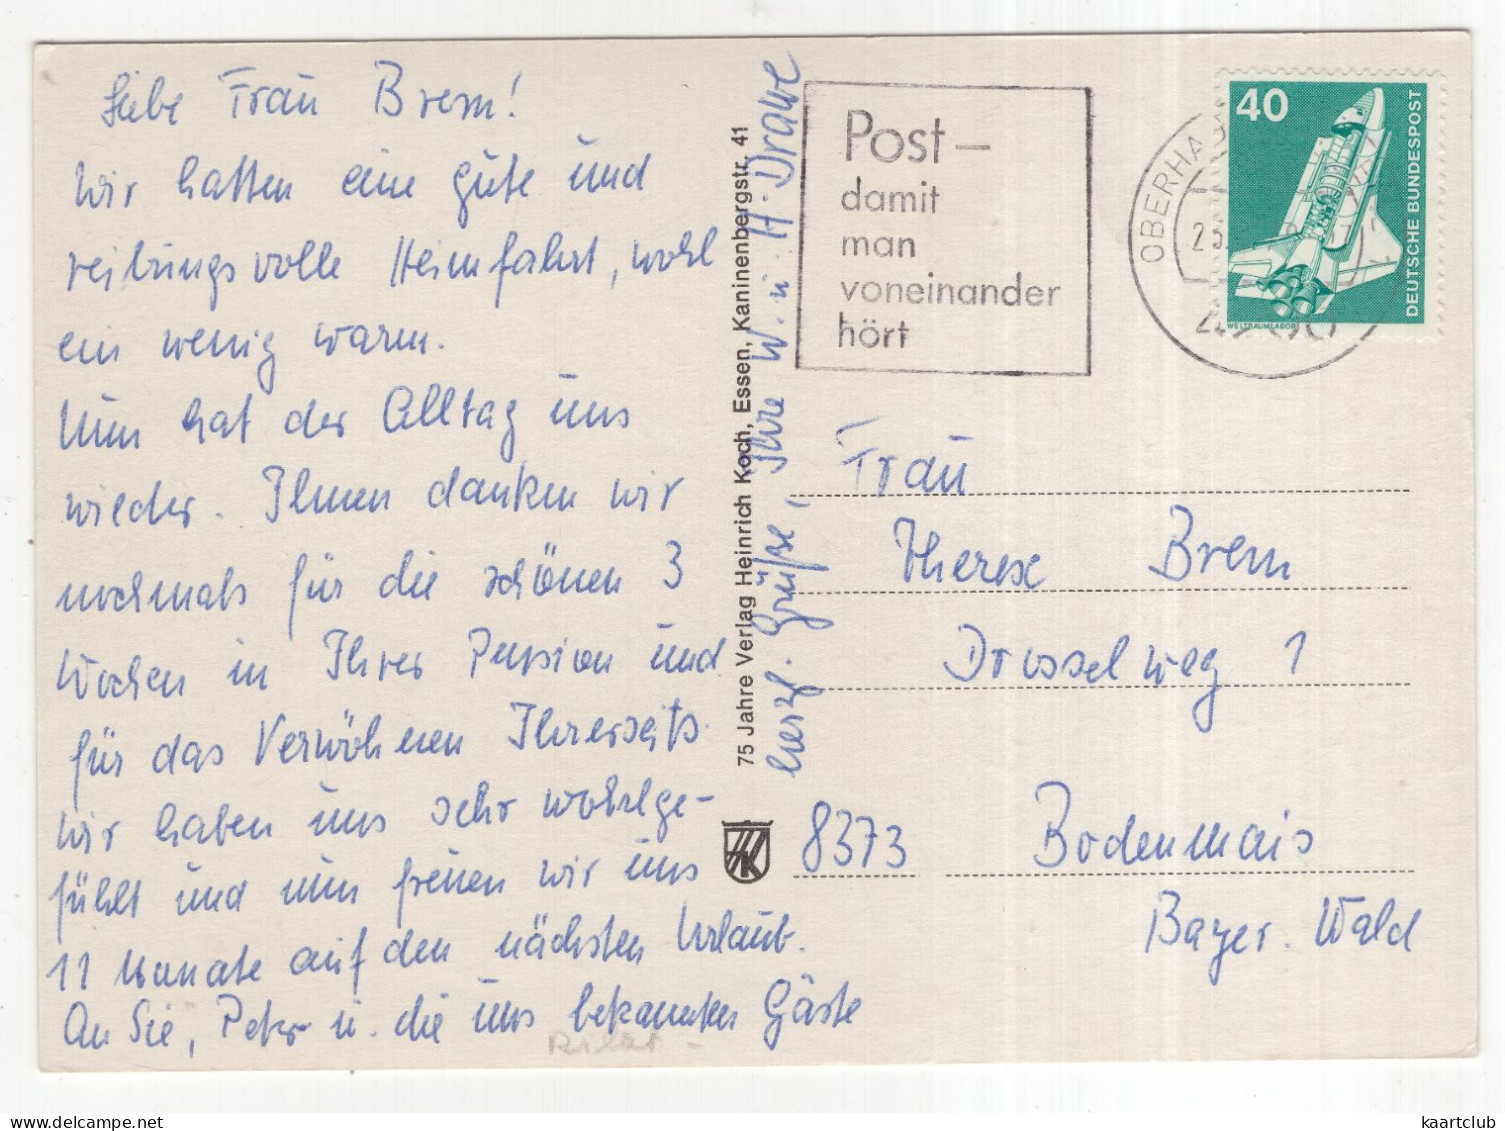 Liebe Frau Brem!
Wir hatten eine gute und
reibungsvolle Heimfahrt, wohl
ein wenig warm.
Nun hat der Alltag uns
wieder. Ihnen danken wir
nochmals für die schönen 3
Wochen in Ihrer Pension und
für das Verwöhnen Ihrerseits.
Wir haben uns sehr wohlge-
fühlt und nun freuen wir uns
11 Monate auf den nächsten Urlaub.
An Sie, Peter u. die uns bekannten Gäste
herzl. Grüße, Ihre W. u. H. Drawe
75 Jahre Verlag Heinrich Koch, Essen, Kaninenbergstr. 41
HK
Post –
damit
man
voneinander
hört
OBERHA
40
DEUTSCHE BUNDESPOST
WELTRAUMLABOR
Frau
Therese Brem
Drosselweg 1
8373 Bodenmais
Bayer. Wald
kaartclub